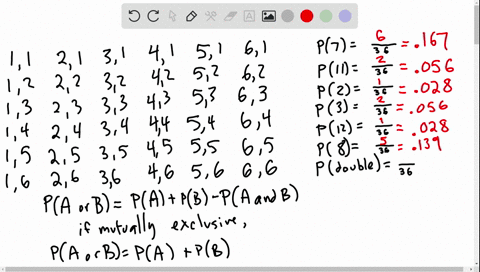 1,1 2,1 3,1 4,1 5,1 6,1
1,2 2,2 3,2 4,2 5,2 6,2
1,3 2,3 3,3 4,3 5,3 6,3
1,4 2,4 3,4 4,4 5,4 6,4
1,5 2,5 3,5 4,5 5,5 6,5
1,6 2,6 3,6 4,6 5,6 6,6
P(A or B) = P(A) + P(B) - P(A and B)
if mutually exclusive,
P(A or B) = P(A) + P(B)
P(7) = 6/36 = .167
P(11) = 2/36 = .056
P(2) = 1/36 = .028
P(3) = 2/36 = .056
P(12) = 1/36 = .028
P(8) = 5/36 = .139
P(double) = /36